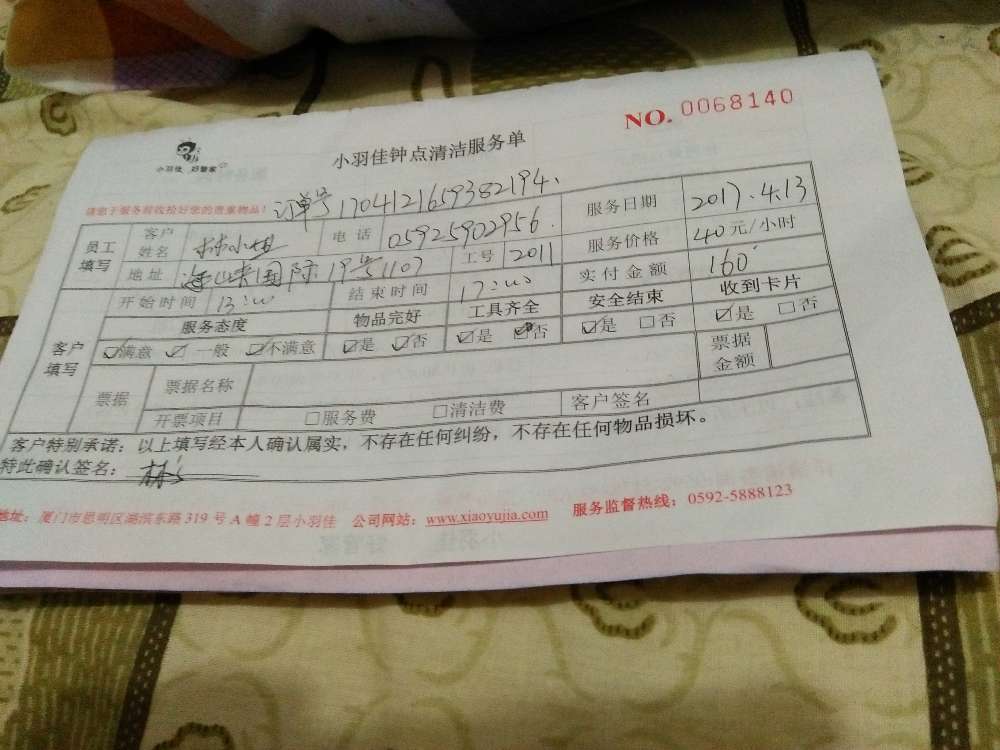 NO. 0068140
小羽佳 好管家
小羽佳钟点清洁服务单
请您于服务前收捡好您的贵重物品! 订单号 1704121659382194.
员工填写 客户姓名 林小姐 电话 05925902956. 服务日期 2017.4.13
地址 国际19号1107 工号 2011 服务价格 40元/小时
开始时间 13:00 结束时间 17:00 实付金额 160
客户填写 服务态度 物品完好 工具齐全 安全结束 收到卡片
☑满意 ☑一般 ☑不满意 ☑是 ☑否 ☑是 ☑否 ☑是 □否 ☑是 □否
票据 票据名称 票据金额
开票项目 □服务费 □清洁费 客户签名
客户特别承诺：以上填写经本人确认属实，不存在任何纠纷，不存在任何物品损坏。
特此确认签名：林
地址：厦门市思明区湖滨东路319号A幢2层小羽佳 公司网站：www.xiaoyujia.com 服务监督热线：0592-5888123